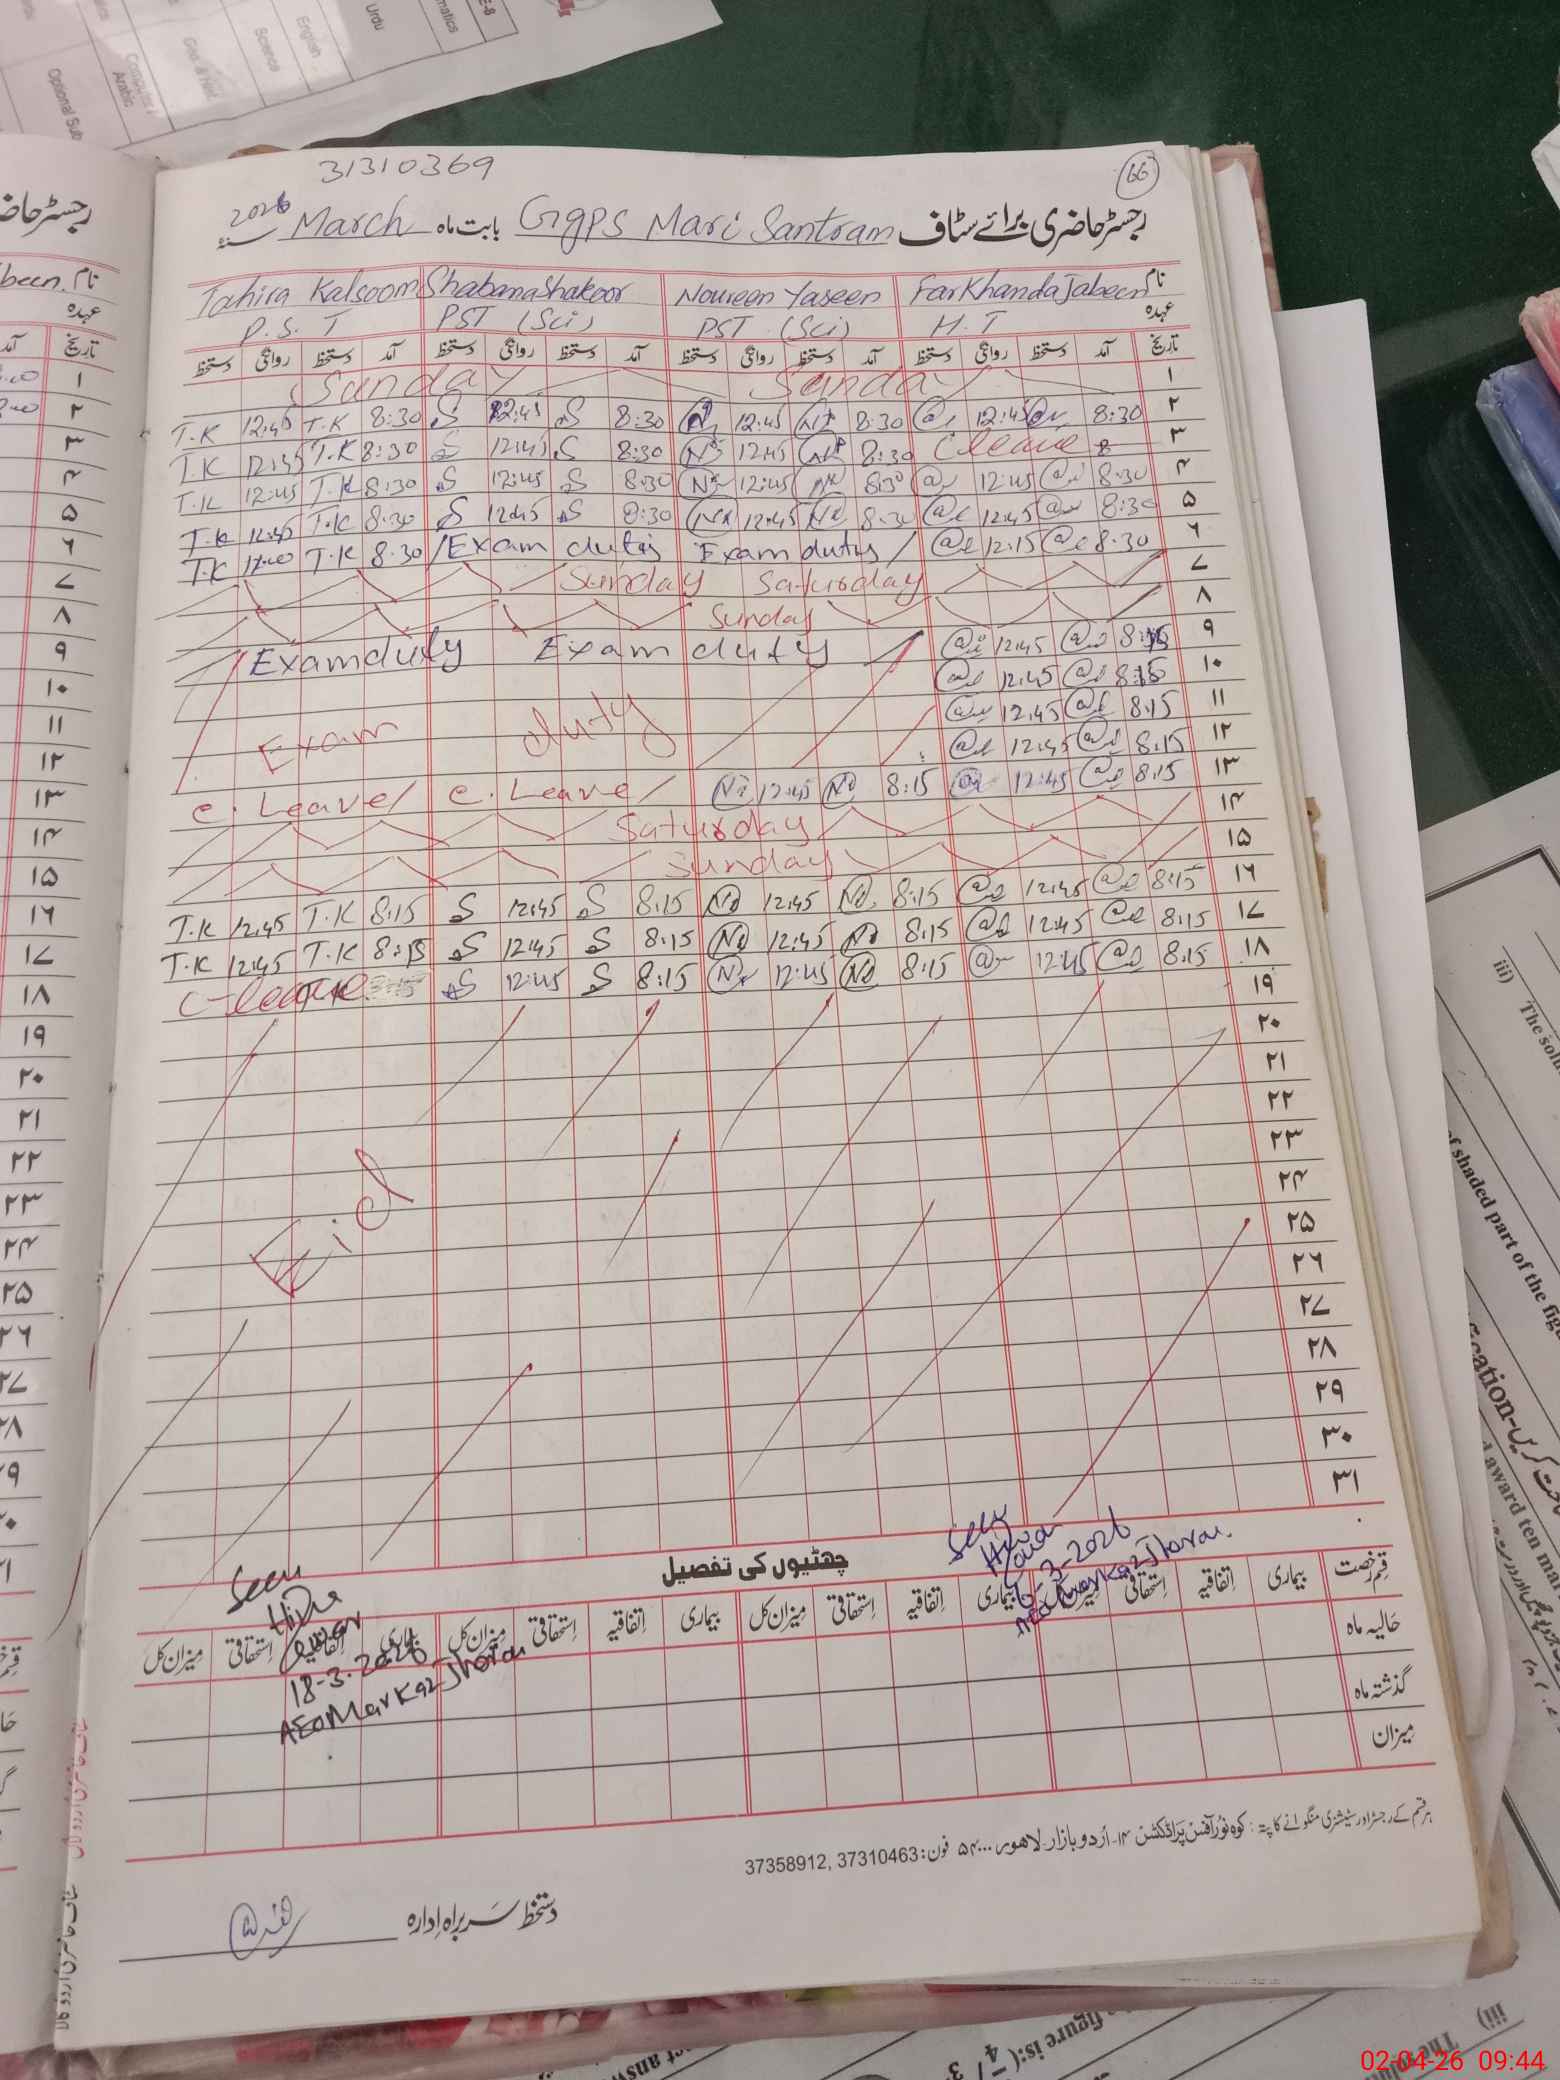 31310369
66
رجسٹر حاضری برائے سٹاف GGPS Mari Santram بابت ماہ March 2026
نام FarKhanda Jabeen Noureen Yaseen Shabana Shakoor Tahira Kalsoom
عہدہ H.T PST (Sci) PST (Sci) P.S.T
تاریخ آمد دستخط روانگی دستخط آمد دستخط روانگی دستخط آمد دستخط روانگی دستخط آمد دستخط روانگی دستخط
۱ Sunday Sunday
۲ 8:30 12:45 8:30 12:45 8:30 S 12:45 S 8:30 T.K 12:45 T.K
۳ C leave 8:30 12:45 8:30 S 12:45 S 8:30 T.K 12:45 T.K
۴ 8:30 12:45 8:30 12:45 8:30 S 12:45 S 8:30 T.K 12:45 T.K
۵ 8:30 12:45 8:30 12:45 8:30 S 12:45 S 8:30 T.K 12:45 T.K
۶ 8:30 12:15 Exam duty Exam duty 8:30 T.K 12:00 T.K
۷ Sunday Saturday
۸ Sunday
۹ 8:15 12:45 Exam duty Exam duty
۱۰ 8:15 12:45
۱۱ 8:15 12:45 Exam duty
۱۲ 8:15 12:45
۱۳ 8:15 12:45 8:15 12:45 C. Leave C. Leave
۱۴ Saturday
۱۵ Sunday
۱۶ 8:15 12:45 8:15 12:45 8:15 S 12:45 S 8:15 T.K 12:45 T.K
۱۷ 8:15 12:45 8:15 12:45 8:15 S 12:45 S 8:15 T.K 12:45 T.K
۱۸ 8:15 12:45 8:15 12:45 8:15 S 12:45 S C-leave
۱۹
۲۰
۲۱
۲۲
۲۳
۲۴ Eid
۲۵
۲۶
۲۷
۲۸
۲۹
۳۰
۳۱
Seen
Hina
6-3-2026
AEO Markaz Jhoran
Seen
Hina
18-3-2026
AEO Markaz Jhoran
چھٹیوں کی تفصیل
قسم رخصت بیماری اتفاقیہ استحقاقی میزان کل بیماری اتفاقیہ استحقاقی میزان کل بیماری اتفاقیہ استحقاقی میزان کل بیماری اتفاقیہ استحقاقی میزان کل
حالیہ ماہ
گذشتہ ماہ
میزان
ہر قسم کے رجسٹر اور سٹیشنری منگوانے کا پتہ: کوہ نور آفس پراڈکشن ۱۴۔اردو بازار لاہور ۵۴۰۰۰ فون: 37310463, 37358912
دستخط سربراہ ادارہ
رجسٹر حاضری
نام
عہدہ
تاریخ
آمد
۱
۲
۳
۴
۵
۶
۷
۸
۹
۱۰
۱۱
۱۲
۱۳
۱۴
۱۵
۱۶
۱۷
۱۸
۱۹
۲۰
۲۱
۲۲
۲۳
۲۴
۲۵
۲۶
۲۷
۲۸
Optional Sub
Computer
Arabic
Science
English
Urdu
iii)
of shaded part of the
award ten
figure is:
02-04-26 09:44